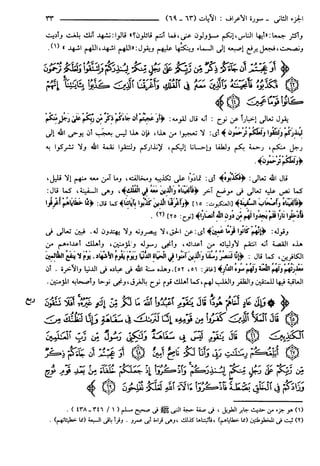 الجزء الثاني - سورة الأعراف : الآيات (٦٣ – ٦٩)
٣٣
وأكثر جمعا: «أيها الناس، إنكم مسؤولون عني، فما أنتم قائلون؟» قالوا: نشهد أنك بلغت وأديت
ونصحت، فجعل يرفع إصبعه إلى السماء وينكتها عليهم ويقول: «اللهم اشهد، اللهم اشهد» (١).
﴿أَوَعَجِبْتُمْ أَن جَاءَكُمْ ذِكْرٌ مِّن رَّبِّكُمْ عَلَىٰ رَجُلٍ مِّنكُمْ لِيُنذِرَكُمْ وَلِتَتَّقُوا وَلَعَلَّكُمْ تُرْحَمُونَ
(٦٣) فَكَذَّبُوهُ فَأَنجَيْنَاهُ وَالَّذِينَ مَعَهُ فِي الْفُلْكِ وَأَغْرَقْنَا الَّذِينَ كَذَّبُوا بِآيَاتِنَا إِنَّهُمْ
كَانُوا قَوْمًا عَمِينَ (٦٤)﴾
يقول تعالى إخبارًا عن نوح : أنه قال لقومه: ﴿أَوَعَجِبْتُمْ أَن جَاءَكُمْ ذِكْرٌ مِّن رَّبِّكُمْ عَلَىٰ رَجُلٍ مِّنكُمْ
لِيُنذِرَكُمْ وَلِتَتَّقُوا وَلَعَلَّكُمْ تُرْحَمُونَ﴾ أي: لا تعجبوا من هذا، فإن هذا ليس يعجب أن يوحى الله إلى
رجل منكم، رحمة بكم ولطفا وإحسانا إليكم، لإنذاركم ولتتقوا نقمة الله ولا تشركوا به
﴿وَلَعَلَّكُمْ تُرْحَمُونَ﴾.
قال الله تعالى: ﴿فَكَذَّبُوهُ﴾ أي: تمادَوْا على تكذيبه ومخالفته، وما آمن معه منهم إلا قليل،
كما نص عليه تعالى في موضع آخر ﴿فَأَنجَيْنَاهُ وَالَّذِينَ مَعَهُ فِي الْفُلْكِ﴾، وهي السفينة، كما قال:
﴿فَأَنجَيْنَاهُ وَأَصْحَابَ السَّفِينَةِ﴾ [العنكبوت: ١٥] ﴿وَأَغْرَقْنَا الَّذِينَ كَذَّبُوا بِآيَاتِنَا﴾ كما قال: ﴿مِّمَّا خَطَايَاهُمْ أُغْرِقُوا
فَأُدْخِلُوا نَارًا فَلَمْ يَجِدُوا لَهُم مِّن دُونِ اللَّهِ أَنصَارًا﴾ [نوح: ٢٥] (٢) .
وقوله: ﴿إِنَّهُمْ كَانُوا قَوْمًا عَمِينَ﴾ أي: عن الحق، لا يبصرونه ولا يهتدون له. فبين تعالى في
هذه القصة أنه انتقم لأوليائه من أعدائه، وأنجى رسوله والمؤمنين، وأهلك أعداءهم من
الكافرين، كما قال : ﴿إِنَّا لَنَنصُرُ رُسُلَنَا وَالَّذِينَ آمَنُوا فِي الْحَيَاةِ الدُّنْيَا وَيَوْمَ يَقُومُ الْأَشْهَادُ. يَوْمَ لَا يَنفَعُ الظَّالِمِينَ
مَعْذِرَتُهُمْ وَلَهُمُ اللَّعْنَةُ وَلَهُمْ سُوءُ الدَّارِ﴾ [غافر: ٥١، ٥٢]. وهذه سنة الله في عباده في الدنيا والآخرة . أن
العاقبة فيها للمتقين والظفر والغلب لهم، كما أهلك قوم نوح بالغرق، ونجى نوحا وأصحابه المؤمنين.
﴿وَإِلَىٰ عَادٍ أَخَاهُمْ هُودًا قَالَ يَا قَوْمِ اعْبُدُوا اللَّهَ مَا لَكُم مِّنْ إِلَٰهٍ غَيْرُهُ أَفَلَا تَتَّقُونَ (٦٥) قَالَ
ربع
الْمَلَأُ الَّذِينَ كَفَرُوا مِن قَوْمِهِ إِنَّا لَنَرَاكَ فِي سَفَاهَةٍ وَإِنَّا لَنَظُنُّكَ مِنَ الْكَاذِبِينَ
(٦٦) قَالَ يَا قَوْمِ لَيْسَ بِي سَفَاهَةٌ وَلَٰكِنِّي رَسُولٌ مِّن رَّبِّ الْعَالَمِينَ (٦٧) أُبَلِّغُكُمْ
رِسَالَاتِ رَبِّي وَأَنَا لَكُمْ نَاصِحٌ أَمِينٌ (٦٨) أَوَعَجِبْتُمْ أَن جَاءَكُمْ ذِكْرٌ
مِّن رَّبِّكُمْ عَلَىٰ رَجُلٍ مِّنكُمْ لِيُنذِرَكُمْ وَاذْكُرُوا إِذْ جَعَلَكُمْ خُلَفَاءَ مِن بَعْدِ قَوْمِ نُوحٍ
وَزَادَكُمْ فِي الْخَلْقِ بَسْطَةً فَاذْكُرُوا آلَاءَ اللَّهِ لَعَلَّكُمْ تُفْلِحُونَ (٦٩)﴾
(١) هو جزء من حديث جابر الطويل ، في صفة حجة النبي ﷺ في صحيح مسلم ( ١ / ٣٤١ - ٤٣٨ ) .
(٢) ثبت في المخطوطتين (مما خطاياهم)، فأثبتناها كذلك ، وهي قراءة أبي عمرو . وقرأ باقي السبعة (مما خطيئاتهم) .